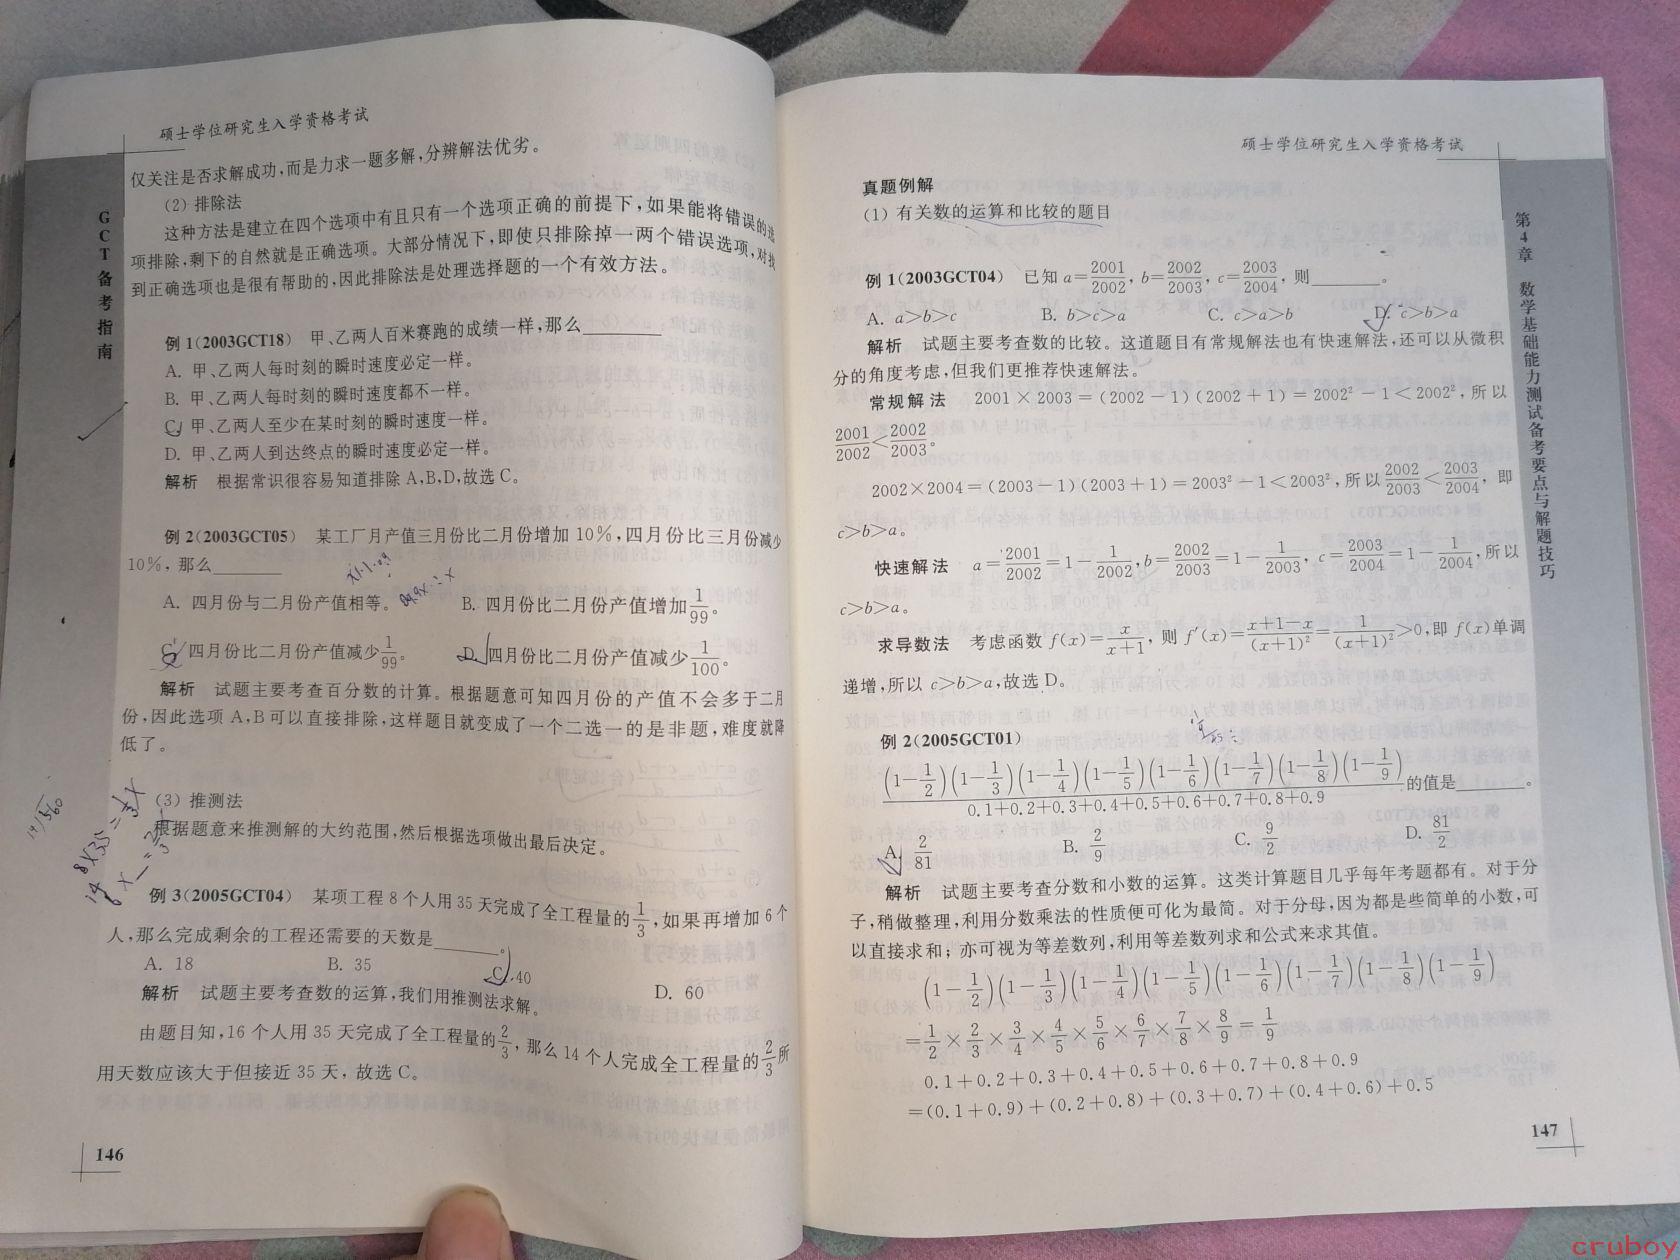 硕士学位研究生入学资格考试
GCT备考指南
仅关注是否求解成功,而是力求一题多解,分辨解法优劣。
(2) 排除法
这种方法是建立在四个选项中有且只有一个选项正确的前提下,如果能将错误的选
项排除,剩下的自然就是正确选项。大部分情况下,即使只排除掉一两个错误选项,对找
到正确选项也是很有帮助的,因此排除法是处理选择题的一个有效方法。
例 1(2003GCT18) 甲、乙两人百米赛跑的成绩一样,那么______
A. 甲、乙两人每时刻的瞬时速度必定一样。
B. 甲、乙两人每时刻的瞬时速度都不一样。
C. 甲、乙两人至少在某时刻的瞬时速度一样。
D. 甲、乙两人到达终点的瞬时速度必定一样。
解析 根据常识很容易知道排除 A,B,D,故选 C。
例 2(2003GCT05) 某工厂月产值三月份比二月份增加 10%,四月份比三月份减少
10%,那么______
A. 四月份与二月份产值相等。 B. 四月份比二月份产值增加1/99。
C. 四月份比二月份产值减少1/99。 D. 四月份比二月份产值减少1/100。
解析 试题主要考查百分数的计算。根据题意可知四月份的产值不会多于二月
份,因此选项 A,B 可以直接排除,这样题目就变成了一个二选一的是非题,难度就降
低了。
(3) 推测法
根据题意来推测解的大约范围,然后根据选项做出最后决定。
8×35=1/3x
例 3(2005GCT04) 某项工程 8 个人用 35 天完成了全工程量的1/3,如果再增加 6 个
人,那么完成剩余的工程还需要的天数是______。
A. 18 B. 35 C. 40 D. 60
解析 试题主要考查数的运算,我们用推测法求解。
由题目知,16 个人用 35 天完成了全工程量的2/3,那么 14 个人完成全工程量的2/3所
用天数应该大于但接近 35 天,故选 C。
146
硕士学位研究生入学资格考试
第4章 数学基础能力测试备考要点与解题技巧
真题例解
(1) 有关数的运算和比较的题目
例 1(2003GCT04) 已知 a=2001/2002, b=2002/2003, c=2003/2004, 则______。
A. a>b>c B. b>c>a C. c>a>b D. c>b>a
解析 试题主要考查数的比较。这道题目有常规解法也有快速解法,还可以从微积
分的角度考虑,但我们更推荐快速解法。
常规解法 2001×2003=(2002-1)(2002+1)=2002²-1<2002²,所以
2001/2002<2002/2003。
2002×2004=(2003-1)(2003+1)=2003²-1<2003²,所以2002/2003<2003/2004,即
c>b>a。
快速解法 a=2001/2002=1-1/2002,b=2002/2003=1-1/2003, c=2003/2004=1-1/2004,所以
c>b>a。
求导数法 考虑函数 f(x)=x/(x+1), 则 f′(x)=(x+1-x)/(x+1)²=1/(x+1)²>0,即 f(x)单调
递增,所以 c>b>a,故选 D。
例 2(2005GCT01)
(1-1/2)(1-1/3)(1-1/4)(1-1/5)(1-1/6)(1-1/7)(1-1/8)(1-1/9)
0.1+0.2+0.3+0.4+0.5+0.6+0.7+0.8+0.9 的值是______。
A. 2/81 B. 2/9 C. 9/2 D. 81/2
解析 试题主要考查分数和小数的运算。这类计算题目几乎每年考题都有。对于分
子,稍做整理,利用分数乘法的性质便可化为最简。对于分母,因为都是些简单的小数,可
以直接求和;亦可视为等差数列,利用等差数列求和公式来求其值。
(1-1/2)(1-1/3)(1-1/4)(1-1/5)(1-1/6)(1-1/7)(1-1/8)(1-1/9)
=1/2×2/3×3/4×4/5×5/6×6/7×7/8×8/9=1/9
0.1+0.2+0.3+0.4+0.5+0.6+0.7+0.8+0.9
=(0.1+0.9)+(0.2+0.8)+(0.3+0.7)+(0.4+0.6)+0.5
147
cruboy